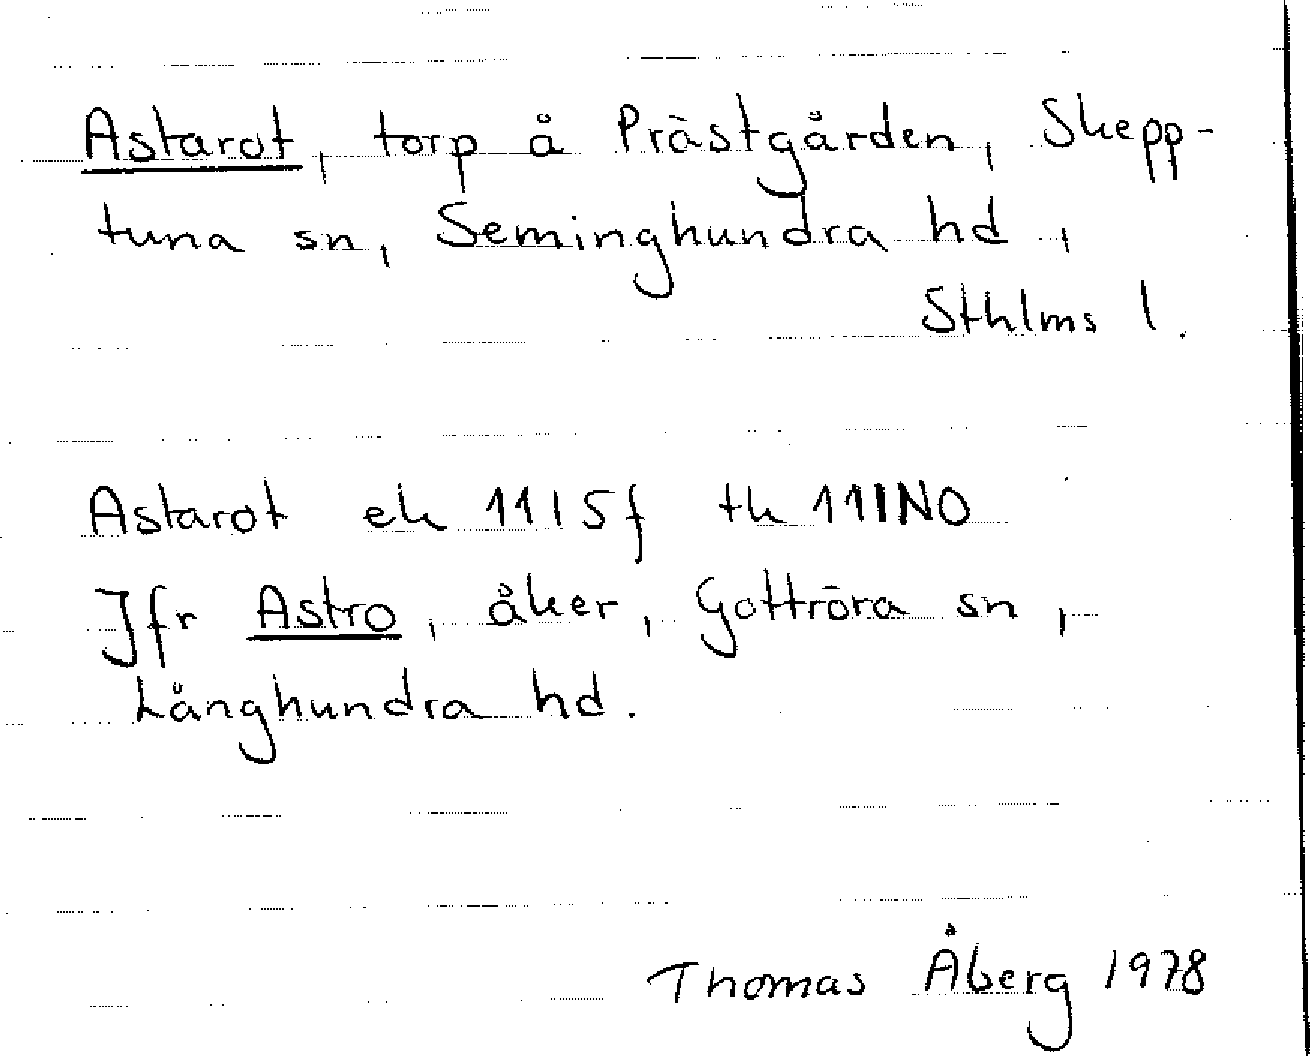 Astarot, torp å Prästgården, Skepp-
tuna sn, Seminghundra hd,
Sthlms l.
Astarot ek 11I5f tk 111NO
Jfr Astro, åker, Gottröra sn,
Långhundra hd.
Thomas Åberg 1978